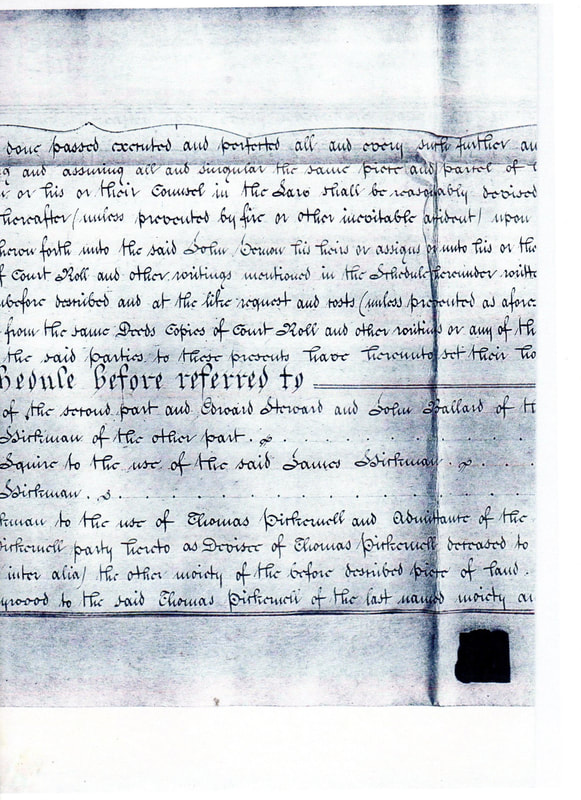 done passed executed and perfected all and every such further an
and assuring all and singular the same piece and parcel of
or his or their Counsel in the Law shall be reasonably devised
hereafter (unless prevented by fire or other inevitable accident) upon
forth unto the said John Vernon his heirs or assigns or unto his or the
f Court Roll and other writings mentioned in the Schedule hereunder writte
before described and at the like request and costs (unless prevented as afore
from the same Deeds Copies of Court Roll and other writings or any of th
the said parties to these presents have hereunto set their
hedule before referred to
of the second part and Edward Steward and John Ballard of
Hickman of the other part
Squire to the use of the said James Hickman
Hickman
kman to the use of Thomas Pickernell and Admittance of the
Pickernell party hereto as Devisee of Thomas Pickernell deceased to
inter alia) the other moiety of the before described piece of land .
to the said Thomas Pickernell of the last named moiety